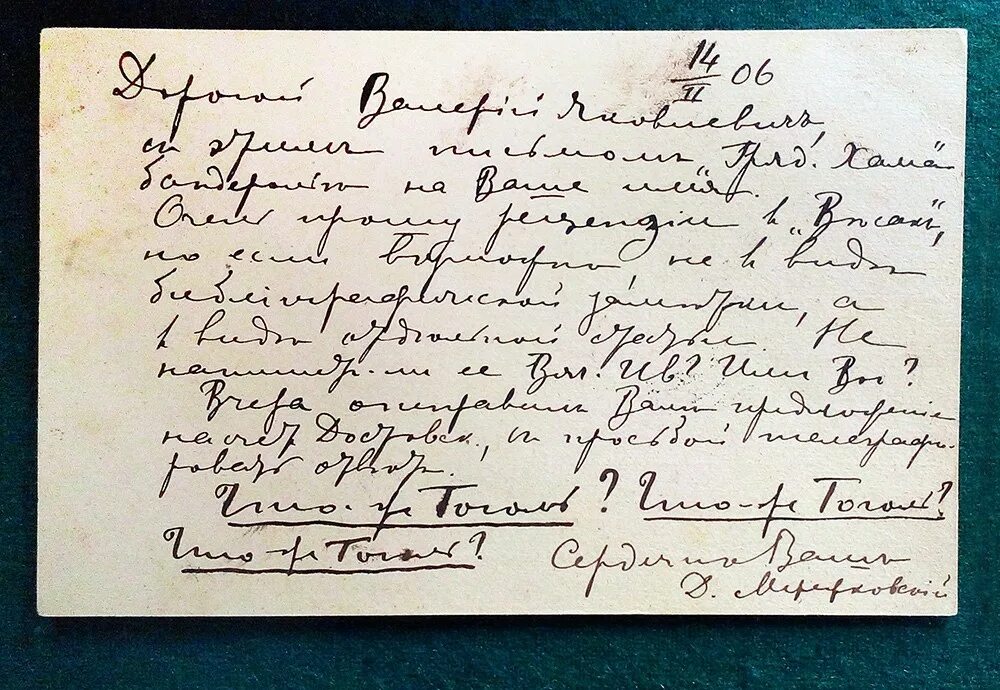 14/II 06
Дорогой Валерій Яковлевичъ,
съ этимъ письмомъ "Гряд. Хамъ"
бандеролью на Ваше имя.
Очень прошу рецензіи въ "Вѣсахъ",
но если возможно, не въ видѣ
библіографической замѣтки, а
въ видѣ отдѣльной статьи. Не
напишетъ-ли ее Вяч. Ив.? Или Вы?
Вчера отправилъ Вамъ предложеніе
насчетъ Достоевск., съ просьбой телеграфи-
ровать отвѣтъ.
Что-же Гоголь? Что-же Гоголь?
Что-же Гоголь? Сердечно Вашъ
Д. Мережковскій